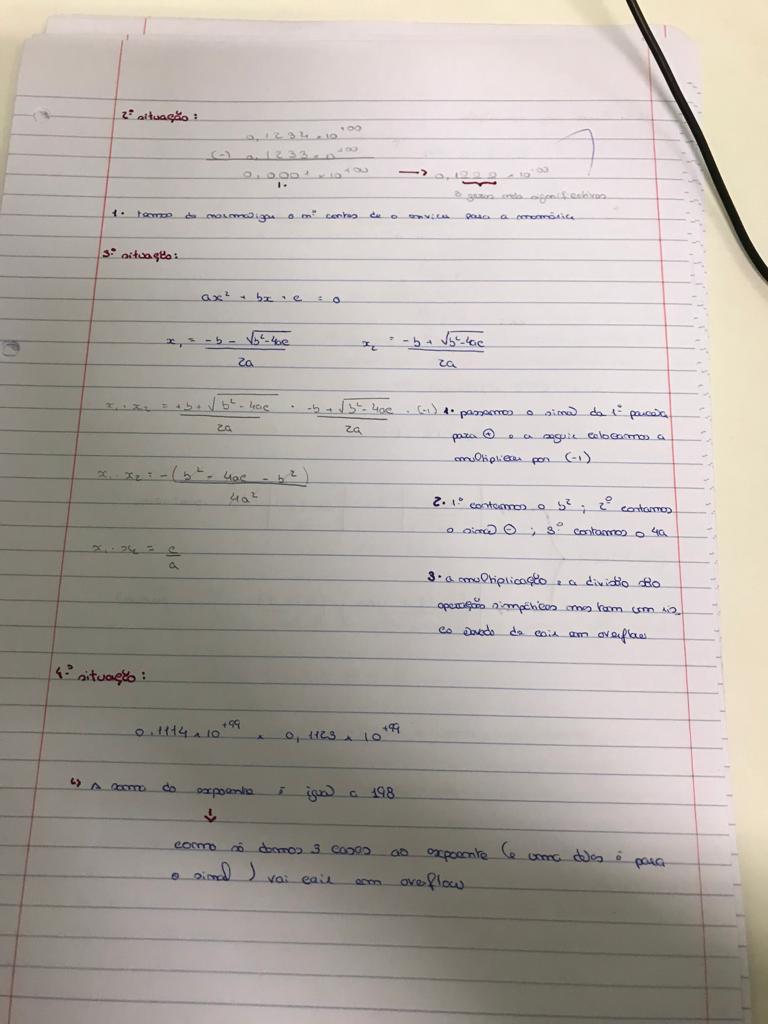 2º situação:
0,1234 x 10⁺⁰⁰
(-) 0,1233 x 10⁺⁰⁰
0,0001 x 10⁺⁰⁰ → 0,1 x 10⁻⁰⁰
1.
1. temos de normalizar o nº antes de o enviar para a memória
3º situação:
ax² + bx + c = 0
x₁ = -b - √b²-4ac / 2a x₂ = -b + √b²-4ac / 2a
x₁ · x₂ = +b + √b² - 4ac / 2a · -b + √b² - 4ac / 2a · (-1) 1. passamos o sinal da 1º parcela
para ⊕ e a seguir colocamos a
multiplicar por (-1)
x₁ · x₂ = -(b² - 4ac - b²) / 4a²
2. 1º contamos o b² ; 2º contamos
o sinal ⊖ ; 3º contamos o 4a
x₁ · x₂ = c / a
3. a multiplicação e a divisão são
operação simpáticas mas tem um ris
co de cair em overflow
4º situação:
0.1114 x 10⁺⁹⁹ x 0,1123 x 10⁺⁹⁹
↳ A soma do expoente é igual a 198
↓
como só damos 3 casas ao expoente (e uma delas é para
o sinal) vai cair em overflow